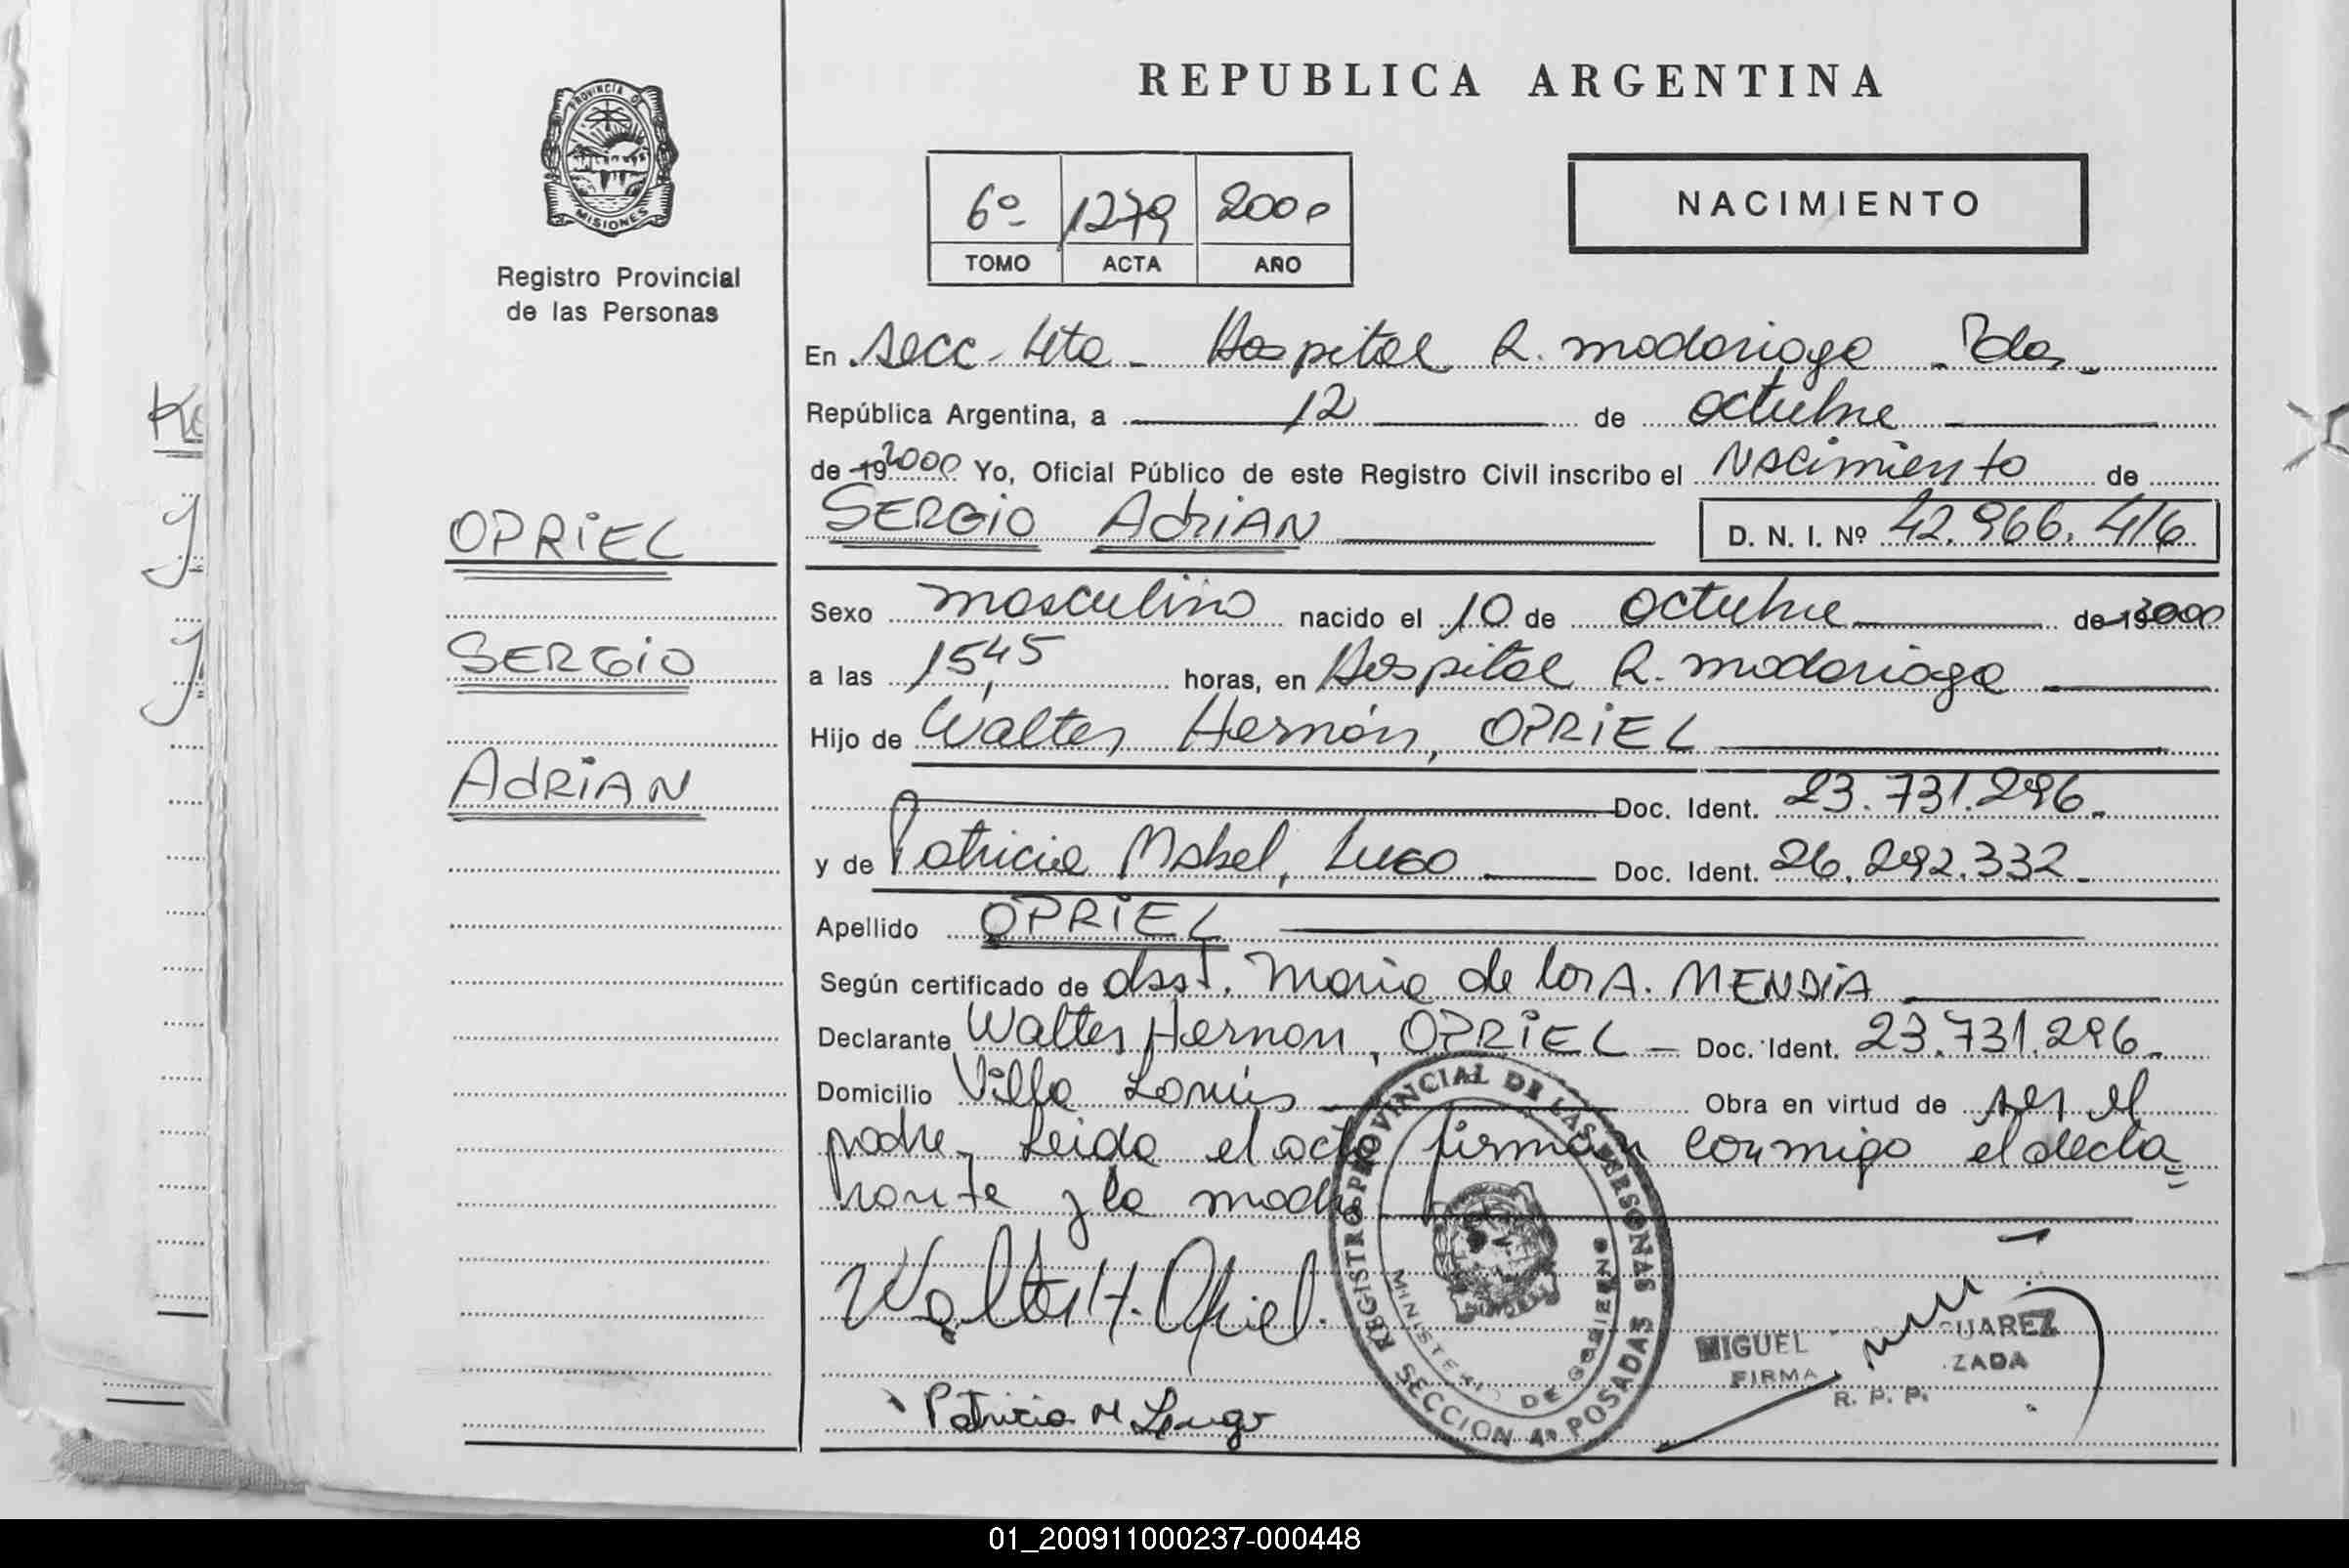 REPUBLICA ARGENTINA
PROVINCIA DE
MISIONES
Registro Provincial
de las Personas
6º 1279 2000
TOMO ACTA AÑO
NACIMIENTO
En Secc. 4ta - Hospital R. Madariaga - Pdas -
República Argentina, a 12 de octubre
de 19 2000 Yo, Oficial Público de este Registro Civil inscribo el Nacimiento de
SERGIO AdRiAN D. N. I. Nº 42.966.416
OPRiEL
SERGiO
AdRiAN
Sexo masculino nacido el 10 de octubre de 19 2000
a las 15,45 horas, en Hospital R. Madariaga
Hijo de Walter Hernán, OPRiEL
Doc. Ident. 23.731.296.
y de Patricia Mabel, LUGO Doc. Ident. 26.292.332.
Apellido OPRiEL
Según certificado de obst. Maria de los A. MENDiA
Declarante Walter Hernan, OPRiEL - Doc. Ident. 23.731.296.
Domicilio Villa Lanús Obra en virtud de ser el
padre, Leida el acta firman conmigo el decla=
rante y la madre
Walter H. Opriel.
Patricia M Lugo
REGISTRO PROVINCIAL DE LAS PERSONAS
MINISTERIO DE GOBIERNO
SECCION 4ª POSADAS
MIGUEL SUAREZ
FIRMA ZADA
R. P. P.
01_200911000237-000448